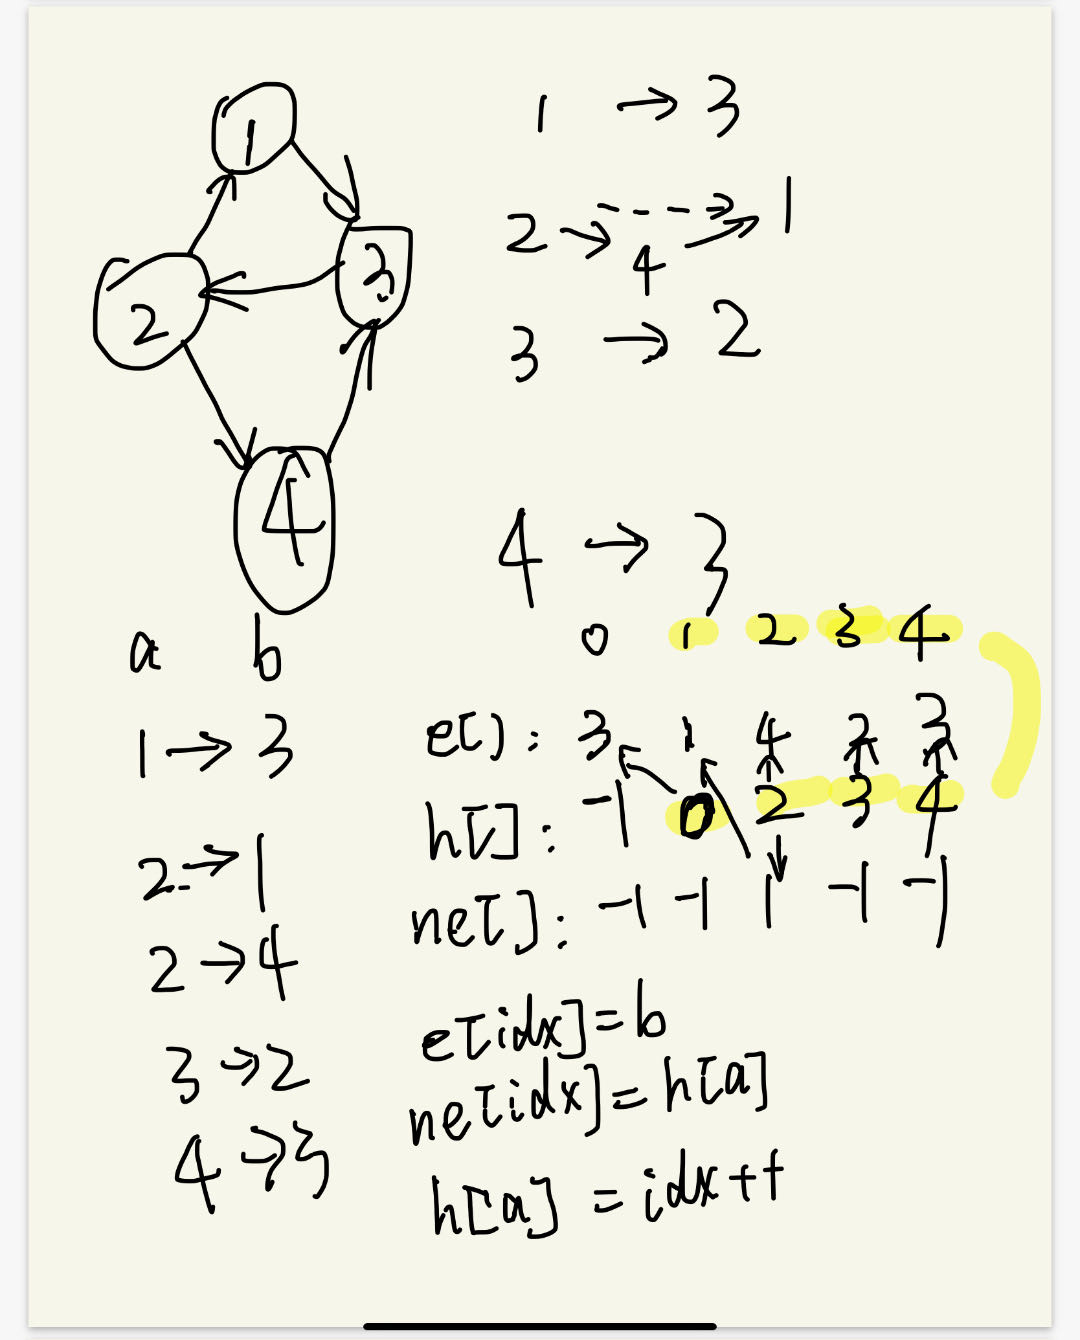 1
2
3
4
1 → 3
2 → 4 → 1
3 → 2
4 → 3
a b
1 → 3
2 → 1
2 → 4
3 → 2
4 → 3
0 1 2 3 4
e[]: 3 1 4 2 3
h[]: -1 0 2 3 4
ne[]: -1 -1 1 -1 -1
e[idx]=b
ne[idx]=h[a]
h[a] = idx++